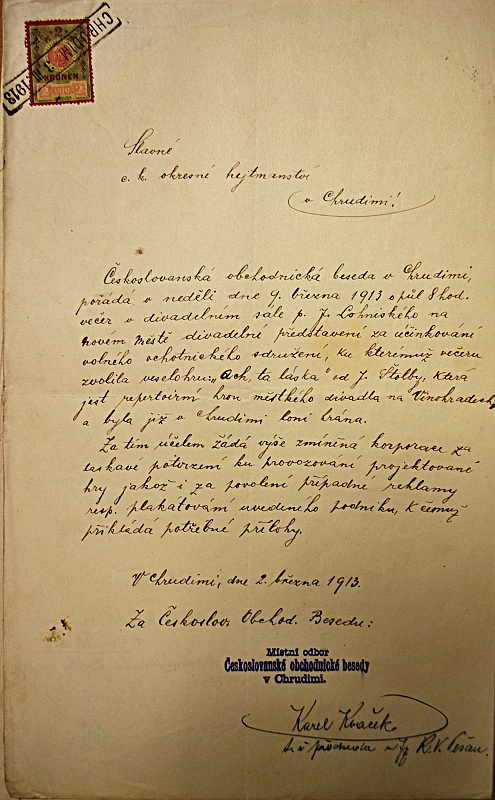 CHRUDIM 3 III 1913
2
KRONEN
2 1910 2
Slavné
c. k. okresné hejtmanství
v Chrudimi!
Českoslovanská obchodnická beseda v Chrudimi,
pořádá v neděli dne 9. března 1913 o půl 8 hod.
večer v divadelním sále p. J. Lohniského na
novém městě divadelní představení za účinkování
volného ochotnického sdružení, ku kterémuž večeru
zvolila veselohru „Ach, ta láska" od J. Štolby, která
jest repertoirní hrou městkého divadla na Vinohradech
a byla již v Chrudimi loni hrána.
Za tím účelem žádá výše zmíněná korporace za
laskavé potvrzení ku provozování projektované
hry jakož i za povolení případné reklamy
resp. plakátování uvedeného podniku, k čemuž
přikládá potřebné přílohy.
V Chrudimi, dne 2. března 1913.
Za Českoslov. Obchod. Besedu:
Místní odbor
Českoslovanské obchodnické besedy
v Chrudimi.
Karel Kvaček